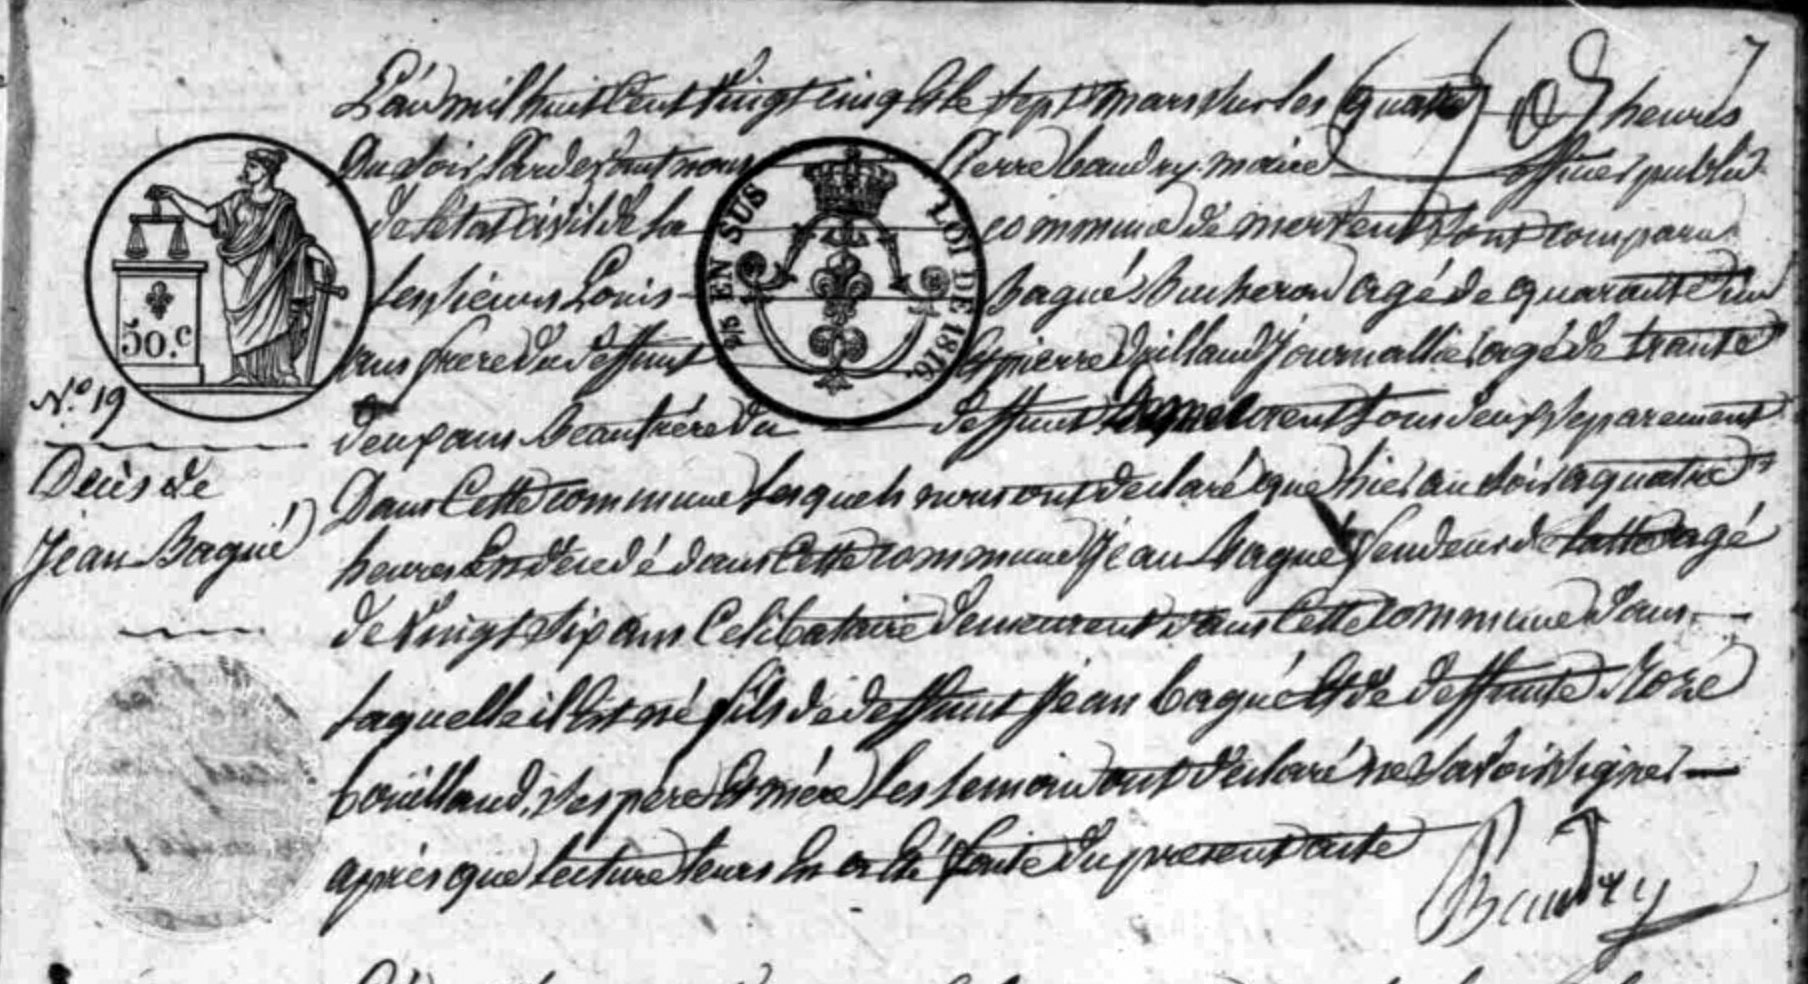 7
L'an mil huit cent vingt cinq et le sept mars sur les quatre heures
Du soir Pardevant nous Pierre baudry maire officier public
de l'état civil de la commune de mortent sont comparu
les sieurs Louis Bagué Bucheron agé de quarante un
ans frere du deffunt et pierre Drilland Journallier agé de trante
deux ans Beaufrére du deffunt Demeurent tous deux separement
Dans Cette commune Lesquels nous ont declaré que hier au soir a quatre
heures Est decedé dans Cette commune Jean Bagué fendeur de latte agé
de Vingt six ans Celibataire demeurent dans Cette commune dans
laquelle il Est né fils de deffunt Jean bagué Et de deffunte Roze
boüilland, ses pere Et mére les temoin ont déclaré ne savoir signer
aprés que lecture leurs En a Eté faite du present acte
Baudry
N.º 19
Decès de
Jean Bagué
50.c
EN SUS LOI DE 1816.